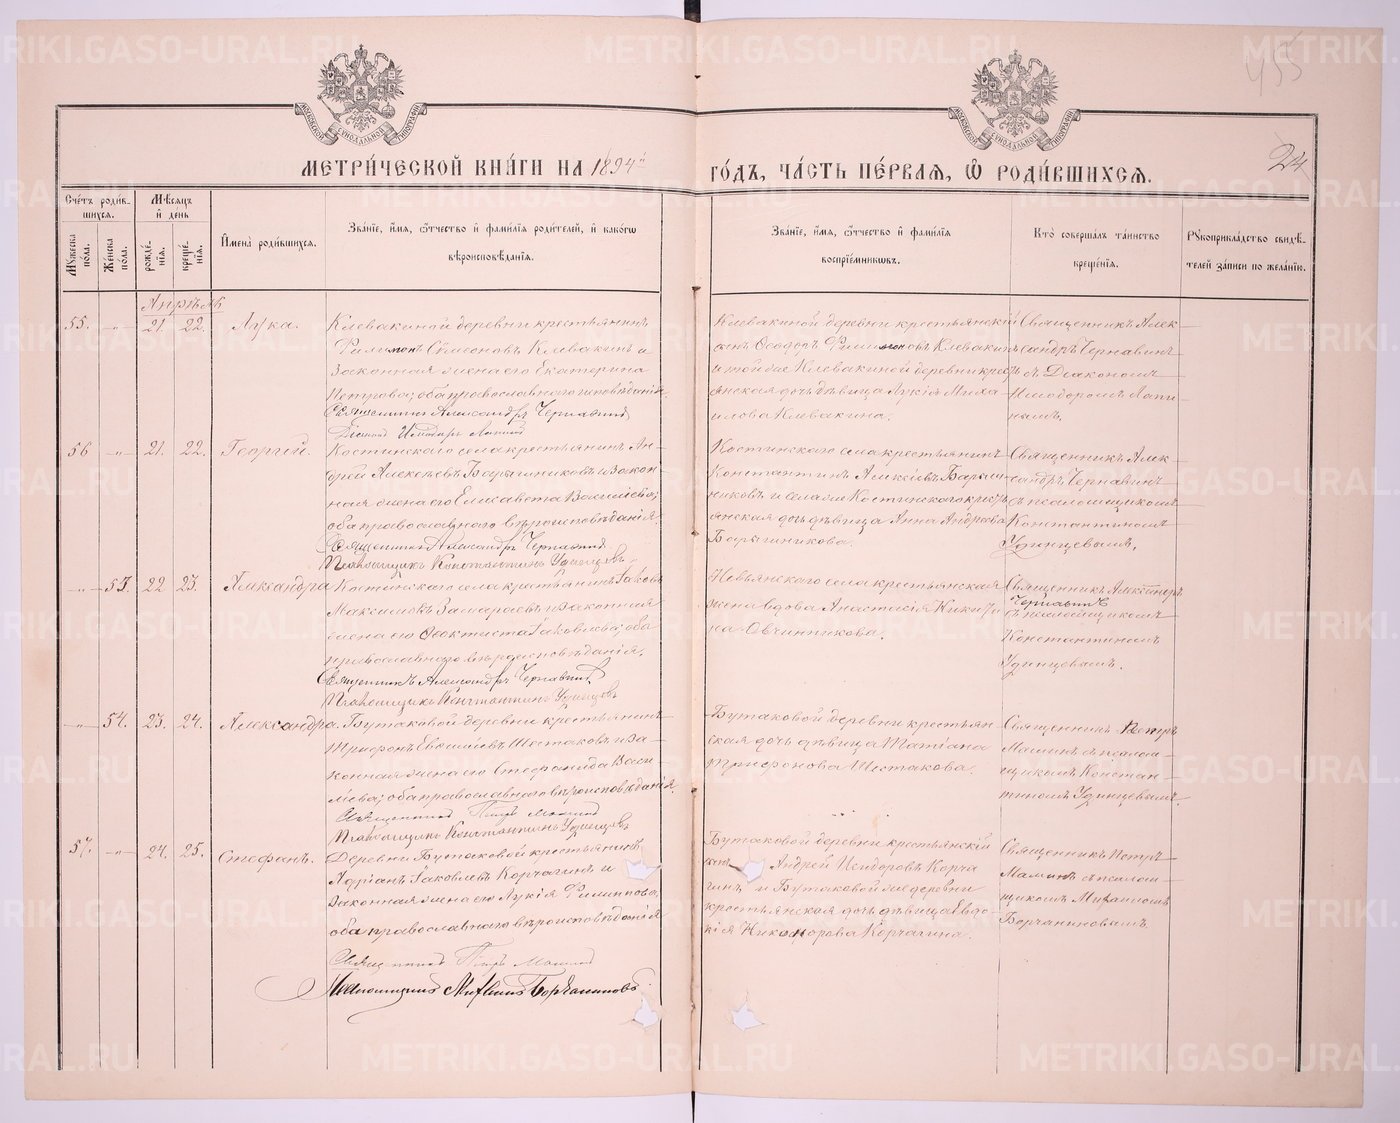 МЕТРИ́ЧЕСКОЙ КНИ́ГИ НА 1894й ГО́ДЪ, ЧА́СТЬ ПЕ́РВАЯ, Ѡ҆ РОДИ́ВШИХСЯ.
455
24
Сче́тъ роди́в-
шихся.
Мѣ́сяцъ
и҆ день
Мꙋ́жеска по́ла.
Же́нска по́ла.
рожде́-
нїя.
креще́-
нїя.
И҆мена̀ роди́вшихся.
Зва́нїе, и҆́мя, ѻ҆́тчество и҆ фами́лїя роди́телей, и҆ какогѡ
вѣроисповѣ́данїя.
Зва́нїе, и҆́мя, ѻ҆́тчество и҆ фами́лїя
воспрїе́мниковъ.
Кто̀ соверша́лъ та́инство
креще́нїя.
Рꙋкоприкла́дство свидѣ́-
телей за́писи по жела́нїю.
Апрѣль
55. -„- 21. 22. Лука.
Клевакиной деревни крестьянинъ
Филимонъ Симеоновъ Клевакинъ и
законная жена его Екатерина
Петрова; оба православнаго исповѣданія.
Священникъ Александръ Чернавинъ
Діаконъ
Клевакиной деревни крестьянскій
сынъ Ѳеодоръ Филимоновъ Клевакинъ
и той же Клевакиной деревни кресть-
янская дочь дѣвица Лукія Миха-
илова Клевакина.
Священникъ Алек-
сандръ Чернавинъ
съ Діакономъ
56 -„- 21. 22. Георгій.
Костинскаго села крестьянинъ Ан-
дрей Алексѣевъ Барышниковъ и закон-
ная жена его Елисавета Васильева;
оба православнаго вѣроисповѣданія.
Священникъ Александръ Чернавинъ
Псаломщикъ Константинъ Удинцевъ
Костинскаго села крестьянинъ
Константинъ Алексіевъ Барыш-
никовъ и села же Костинскаго кресть-
янская дочь дѣвица Анна Андреева
Барышникова.
Священникъ Алек-
сандръ Чернавинъ
съ псаломщикомъ
Константиномъ
Удинцевымъ.
-„- 53. 22 23. Александра
Костинскаго села крестьянинъ Іаковъ
Максимовъ Замараевъ и законная
жена его Ѳеоктиста Іаковлева; оба
православнаго вѣроисповѣданія.
Священникъ Александръ Чернавинъ
Псаломщикъ Константинъ Удинцевъ
Невьянскаго села крестьянская
жена вдова Анастасія Никити-
на Овчинникова.
Священникъ Александръ
Чернавинъ
съ псаломщикомъ
Константиномъ
Удинцевымъ.
-„- 54. 23. 24. Александра.
Бутаковой деревни крестьянинъ
Трифонъ Шестаковъ и за-
конная жена его Стефанида Васи-
льева; оба православнаго вѣроисповѣданія.
Священникъ Петръ Маминъ
Псаломщикъ Константинъ Удинцевъ
Бутаковой деревни крестьян-
ская дочь дѣвица Татіана
Трифонова Шестакова.
Священникъ Петръ
Маминъ съ псалом-
щикомъ Констан-
тиномъ Удинцевымъ.
57. -„- 24. 25. Стефанъ.
Деревни Бутаковой крестьянинъ
Адріанъ Іаковлевъ Корчагинъ и
законная жена его Лукія Филиппова;
оба православнаго вѣроисповѣданія
Священникъ Петръ Маминъ
Псаломщикъ Михаилъ Борчаниновъ
Бутаковой деревни крестьянскій
сынъ Андрей Исидоровъ Корча-
гинъ и Бутаковой же деревни
крестьянская дочь дѣвица Евдо-
кія Никонорова Корчагина.
Священникъ Петръ
Маминъ съ псалом-
щикомъ Михаиломъ
Борчаниновымъ.
METRIKI.GASO-URAL.RU